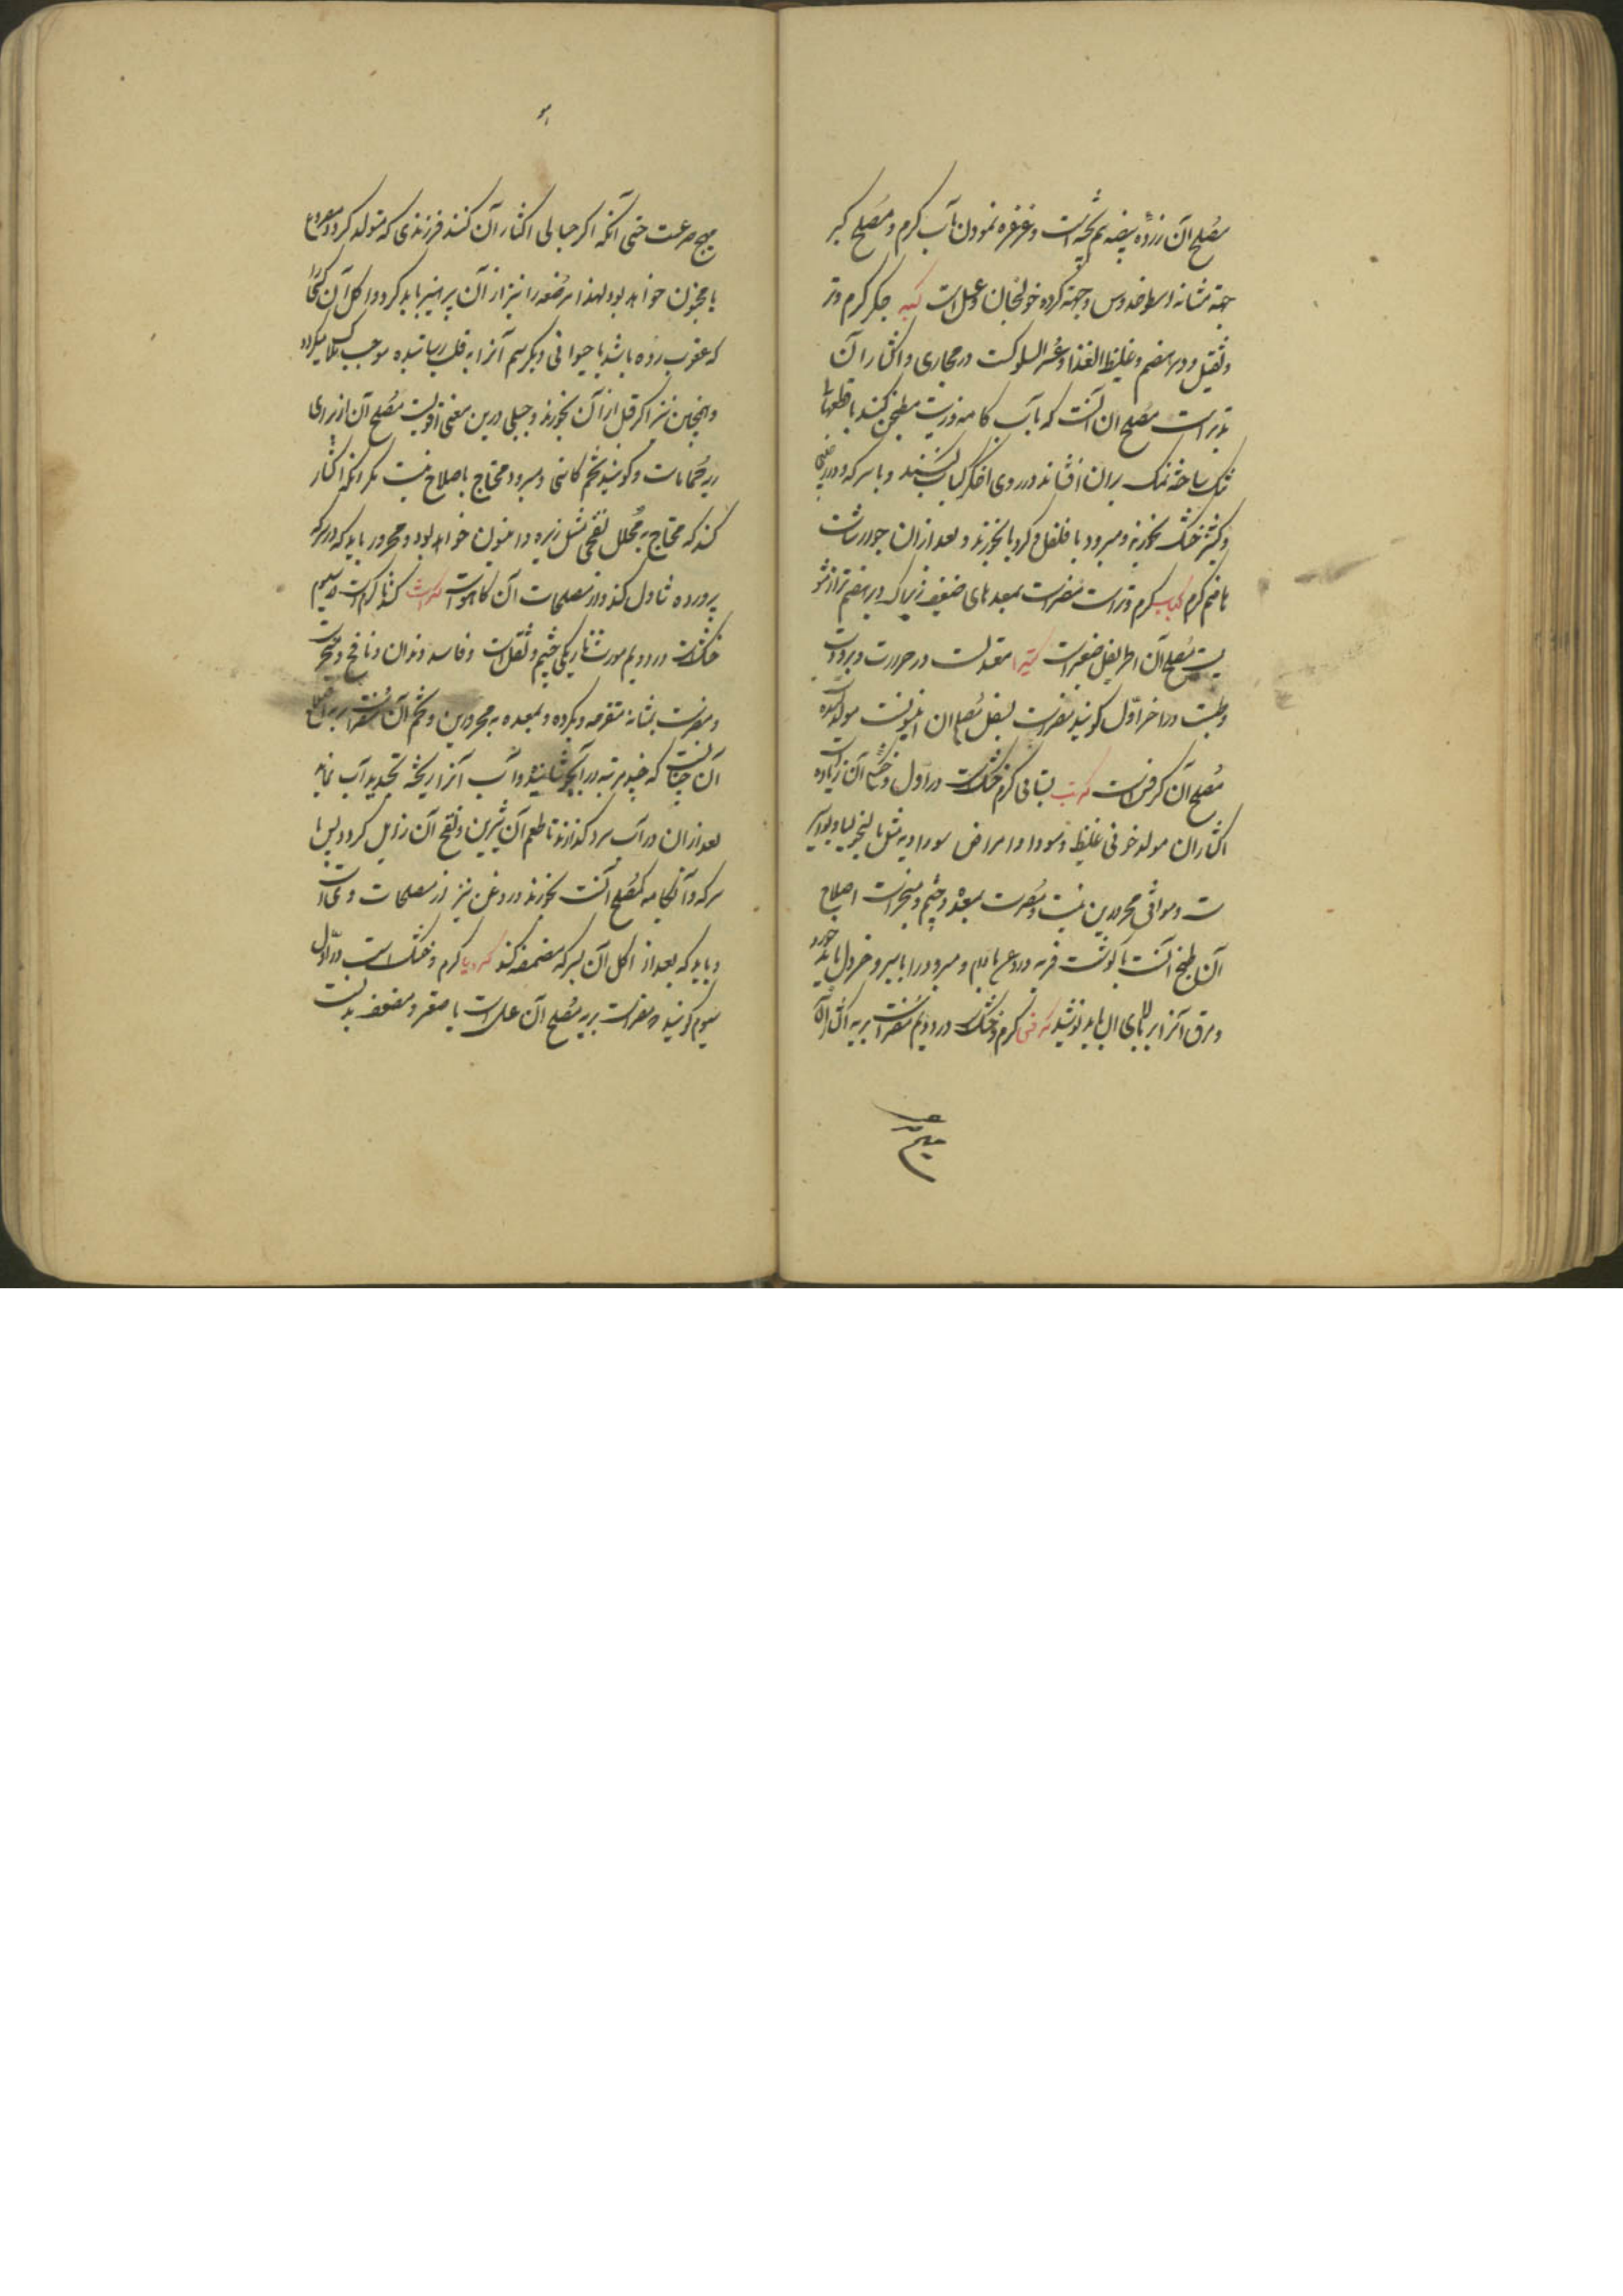 مصلح آن زرده بیضه نیم پخته است و غرغره نمودن بآب گرم و مصلح کبر
جهة مثانه اسطوخدوس و جهة گرده خولنجان و عسل است کبد جگر گرم و تر
و ثقیل و دیر هضم و غلیظ الغذا و عسر السلوکست در مجاری و اکثار آن
است مصلح ان آنست که بآب کامه و زیت مطجن کنند با قطعها
تنک ساخته نمک بران افشانند در روی اخگر کباب کنند و با سرکه و
و کشنیز خشک بخورند و مبرود با فلفل و کرویا بخورند و بعد از ان جوارشات
هاضم گرم کباب گرم و تر است مضر است بمعدهای ضعیف زیرا که دیر هضم تر از
مصلح آن اطریفل صغیر است کتیرا معتدلست در حرارت و برودت
در اخر اول گویند مضر است بسفل مصلح ان انیسونست مولد سده
مصلح آن کرفس است کرنب بستانی گرم خشک است در اول و آن زیاده
اکثار ان مولد خونی غلیظ و سودا و امراض سوداویه مثل مالیخولیا و بواسیر
ست و موافق محرورین نیست و مضر است بمعده و چشم و مبخر است اصلاح
آن طبخ آنست با گوشت فربه و روغن بادام و مبرود را با سیر و خردل باید خورد
و مرق آنرا بر بالای ان باید نوشید کرفس گرم و خشک است در دویم مضر است بریه اکثار آن
مهیج صرعست حتی آنکه اگر حبالی اکثار آن کنند فرزندی که متولد گردد مصروع
یا مجنون خواهد بود لهذا مرضعه را نیز از آن پرهیز باید کرد و اکل آن کسی را
که عقرب زده باشد یا حیوانی دیگر سم آنرا به قلب رسانیده موجب هلاک میگردد
و همچنین نیز اگر قبل از آن بخورند و جبلی درین معنی اقویست مصلح آن از برای
ریه حمامات و گویند تخم کاسنی و مبرود محتاج باصلاح نیست مگر آنکه اکثار
کند که محتاج به محلل نفخی مثل زیره و انیسون خواهد بود و محرور باید که در سرکه
پرورده تناول کند و از مصلحات آن کاهو است کراث گندنا گرم است در سیوم
خشک است در دویم مورث تاریکی چشم و ثقل است و فاسد دندان و نافخ و مبخر است
و مضر است بمثانه متقرحه و بگرده و بمعده به محرورین و تخم آن مضر است بریه اصلاح
آن چنانست که چند مرتبه در آب جوشانیده و آب آنرا ریخته تجدید آب نمایند
بعد ازان در آب سرد گذارند تا طعم آن شیرین و نفخ آن زایل گردد پس با
سرکه و آبکامه که مصلح آنست بخورند و روغن نیز از مصلحات
و باید که بعد از اکل آن بسرکه مضمضه کند کرویا گرم و خشک است در اول
سیوم گویند و مضر است بریه مصلح آن عسل است یا صعتر و مضعف بدنست